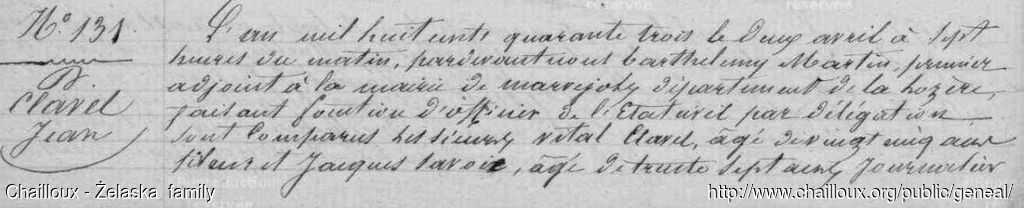 N.° 131.
D
Clavel
Jean
L'an mil huit cents quarante trois le deux avril à Sept
heures du matin, pardevant nous Barthelemy Martin, premier
adjoint à la mairie de marvejols département de la Lozère,
faisant fonction d'officier de l'Etat civil par délégation
sont Comparus les sieurs Vital Clavel, âgé de vingt cinq ans
fileur et Jacques Savoie, âgé de trente Sept ans, Journalier
Chailloux - Żelaska family
http://www.chailloux.org/public/geneal/